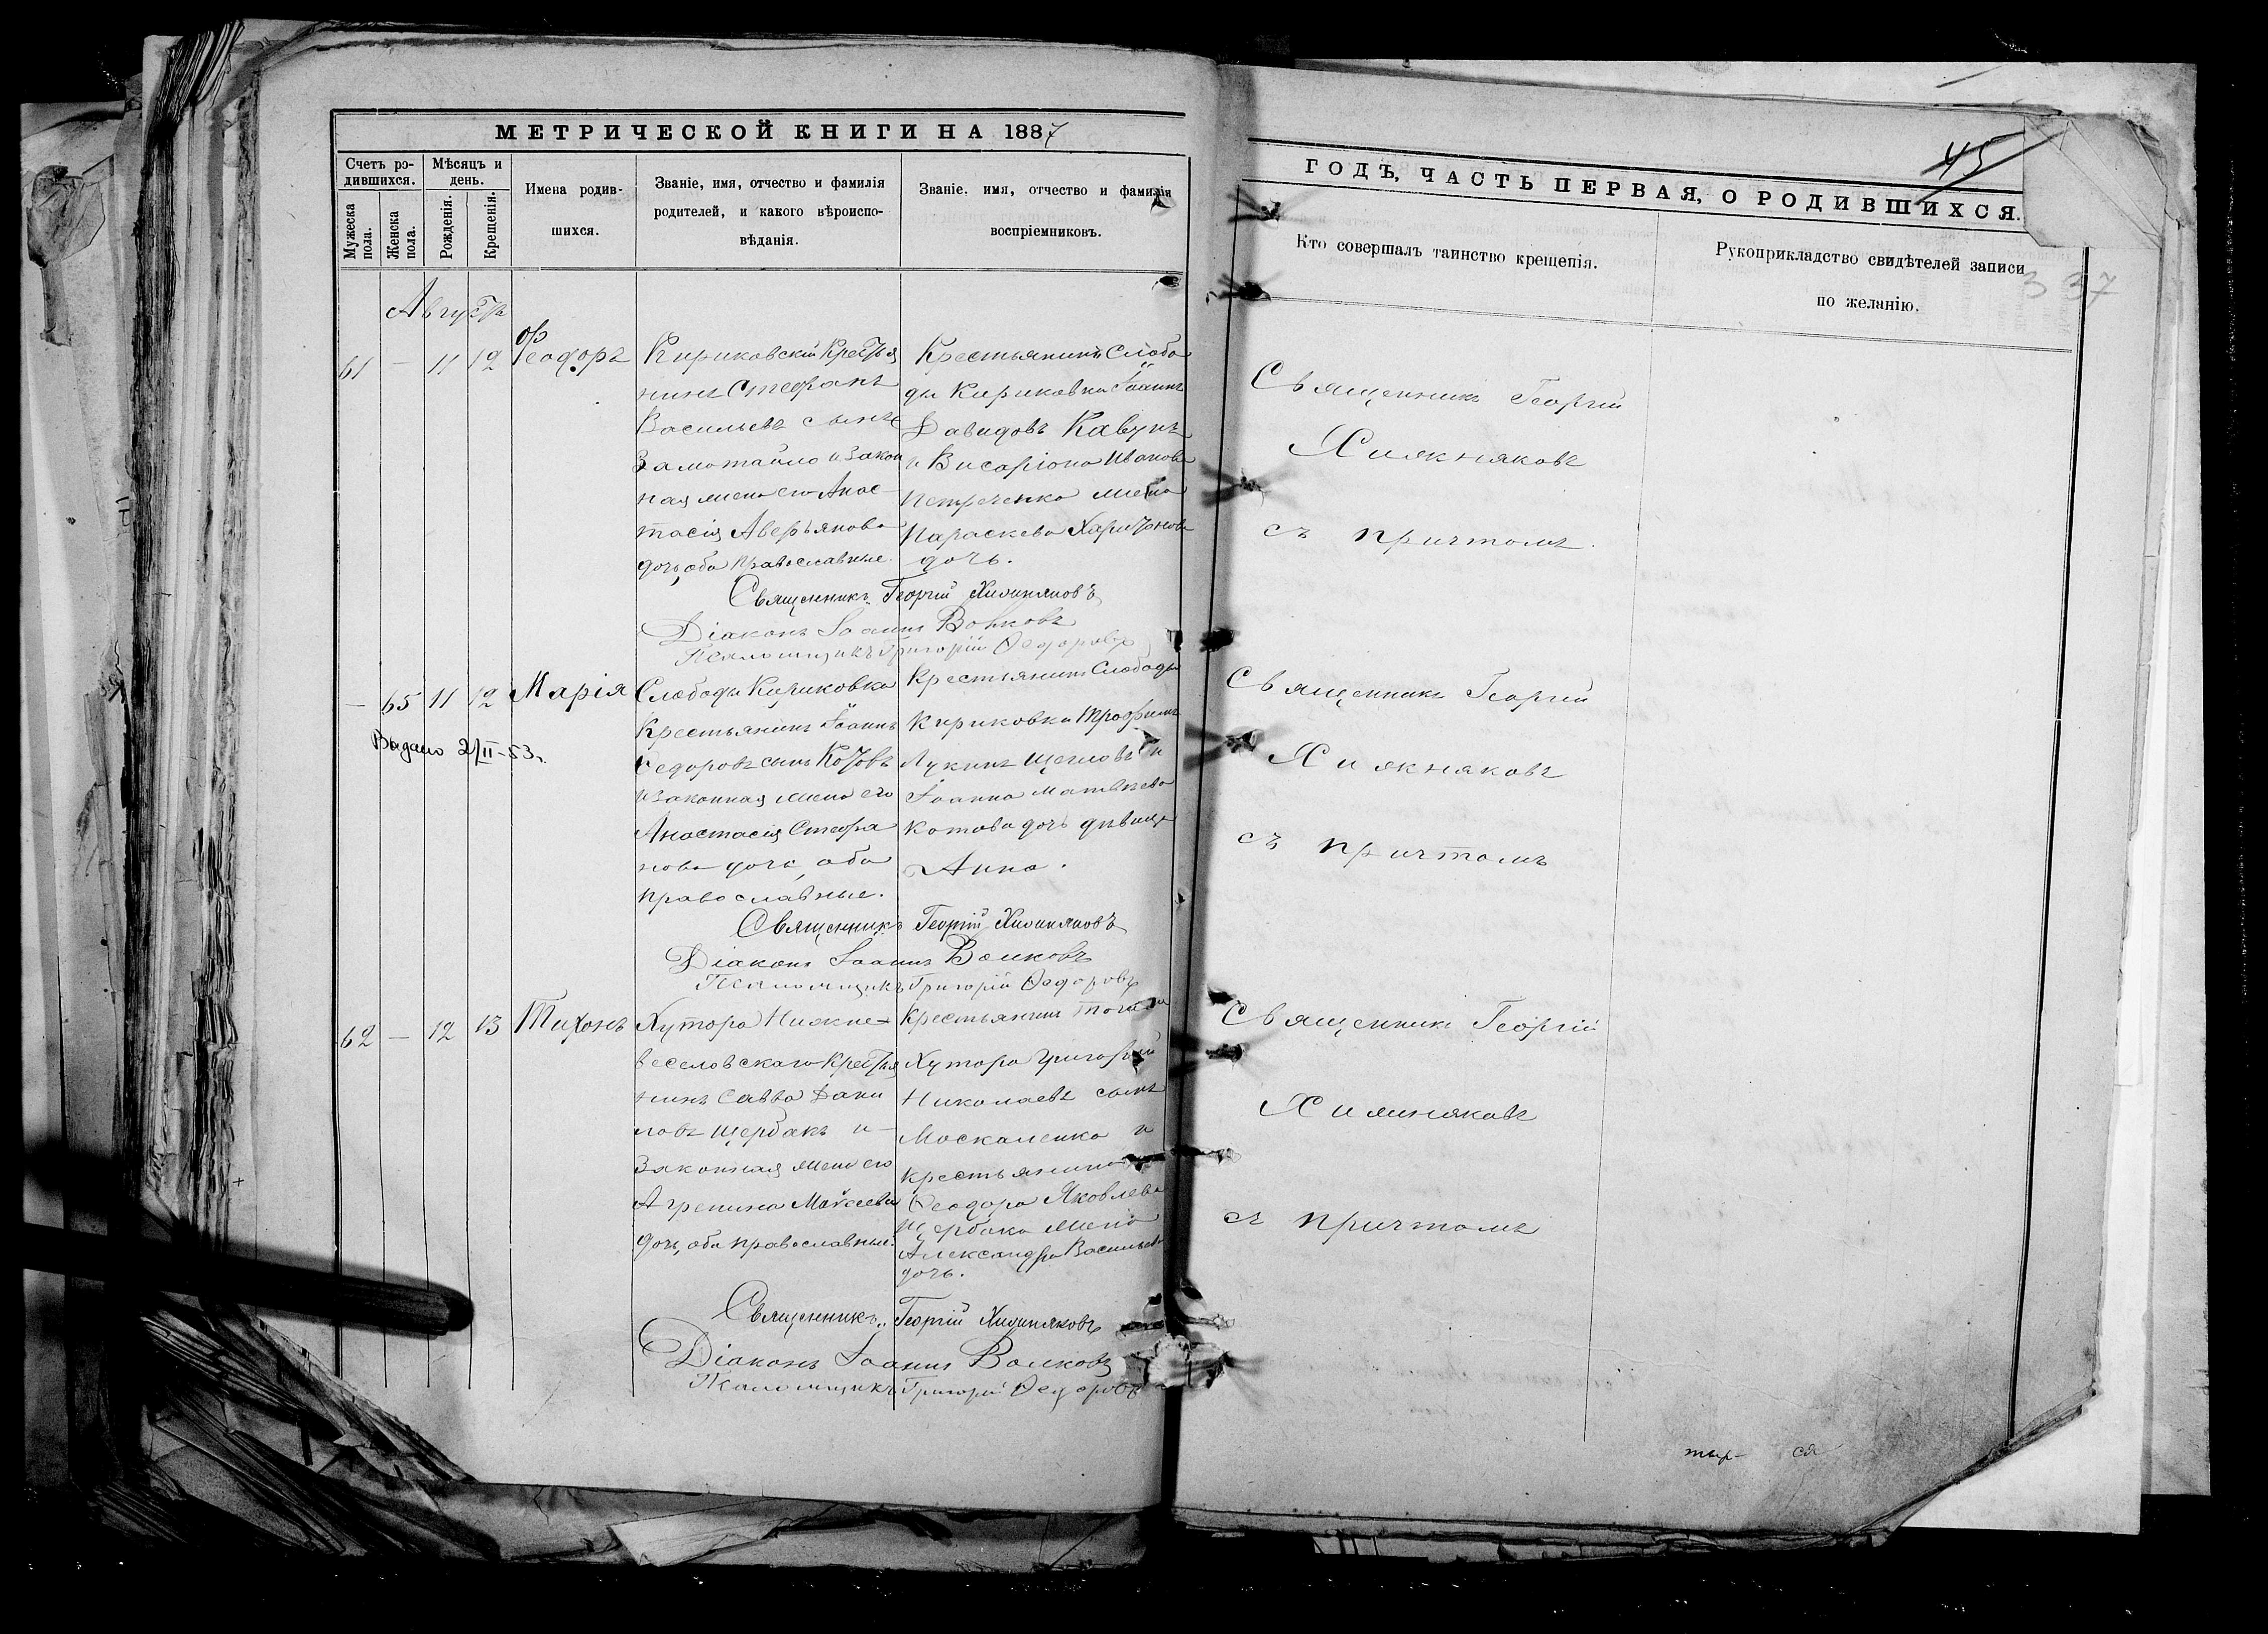 МЕТРИЧЕСКОЙ КНИГИ НА 1887
Счетъ ро-
дившихся.
Мужеска пола.
Женска пола.
Мѣсяцъ и
день.
Рожденія.
Крещенія.
Имена родив-
шихся.
Званіе, имя, отчество и фамилія
родителей, и какого вѣроиспо-
вѣданія.
Званіе, имя, отчество и фамилія
воспріемниковъ.
Августъ
61 — 11 12 Феодоръ
Кириковскій Крестья
нинъ Стефанъ
Васильевъ сынъ
Замотайло и закон
ная жена его Анас-
тасія Аверьянова
дочь, оба православные.
Крестьянинъ Слобо
ды Кириковки Іоаннъ
Давидовъ Кавунъ
и Висаріона Иванова
Петренко жена
Параскева Харитонова
дочь.
Священникъ Георгій Хижняковъ
Діаконъ Іоаннъ Волковъ
Псаломщикъ Григорій Ѳедоровъ
— 65 11 12 Марія
Выдано 2/II-53г.
Слободы Кириковки
Крестьянинъ Іоаннъ
Ѳедоровъ сынъ Котовъ
и законная жена его
Анастасія Стефа
нова дочь, оба
православные.
Крестьянинъ Слободы
Кириковки Трофимъ
Лукинъ Щегловъ и
Іоанна Матвѣева
Котова дочь дѣвица
Анна.
Священникъ Георгій Хижняковъ
Діаконъ Іоаннъ Волковъ
Псаломщикъ Григорій Ѳедоровъ
62 — 12 13 Тихонъ
Хутора Нижне-
веселовскаго Крестья
нинъ Савва Дани
ловъ Щербакъ и
Законная жена его
Агрепина Моисеева
дочь, оба православные.
Крестьянинъ того же
Хутора Григорій
Николаевъ сынъ
Москаленко и
крестьянина
Ѳеодора Яковлева
Щербака жена
Александра Васильева
дочь.
Священникъ Георгій Хижняковъ
Діаконъ Іоаннъ Волковъ
Псаломщикъ Григорій Ѳедоровъ
45
ГОДЪ, ЧАСТЬ ПЕРВАЯ, О РОДИВШИХСЯ.
Кто совершалъ таинство крещенія.
Рукоприкладство свидѣтелей записи
по желанію.
337
Священникъ Георгій
Хижняковъ
съ причтомъ.
Священникъ Георгій
Хижняковъ
съ причтомъ
Священникъ Георгій
Хижняковъ
съ причтомъ
ся